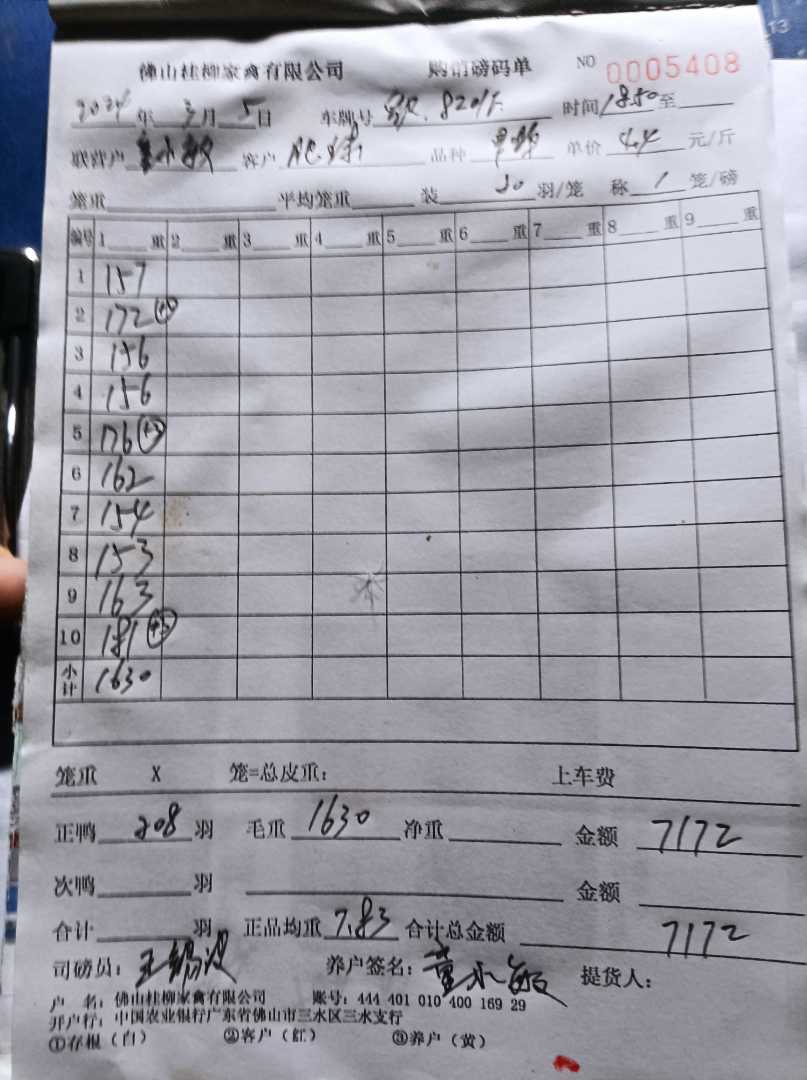 佛山桂柳家禽有限公司 购销磅码单 NO 0005408
2024年3月5日 车牌号 8201 时间1850至
联营户 董永敏 客户 品种 单价 4.4 元/斤
笼重 平均笼重 装 20 羽/笼 称 1 笼/磅
编号 1 重 2 重 3 重 4 重 5 重 6 重 7 重 8 重 9 重
1 157
2 172
3 156
4 156
5 176
6 162
7 154
8 153
9 163
10 181
小计 1630
笼重 X 笼=总皮重: 上车费
正鸭 208 羽 毛重 1630 净重 金额 7172
次鸭 羽 金额
合计 羽 正品均重 7.83 合计总金额 7172
司磅员: 养户签名: 董永敏 提货人:
户 名: 佛山桂柳家禽有限公司 账号: 444 401 010 400 169 29
开户行: 中国农业银行广东省佛山市三水区三水支行
①存根(白) ②客户(红) ③养户(黄)